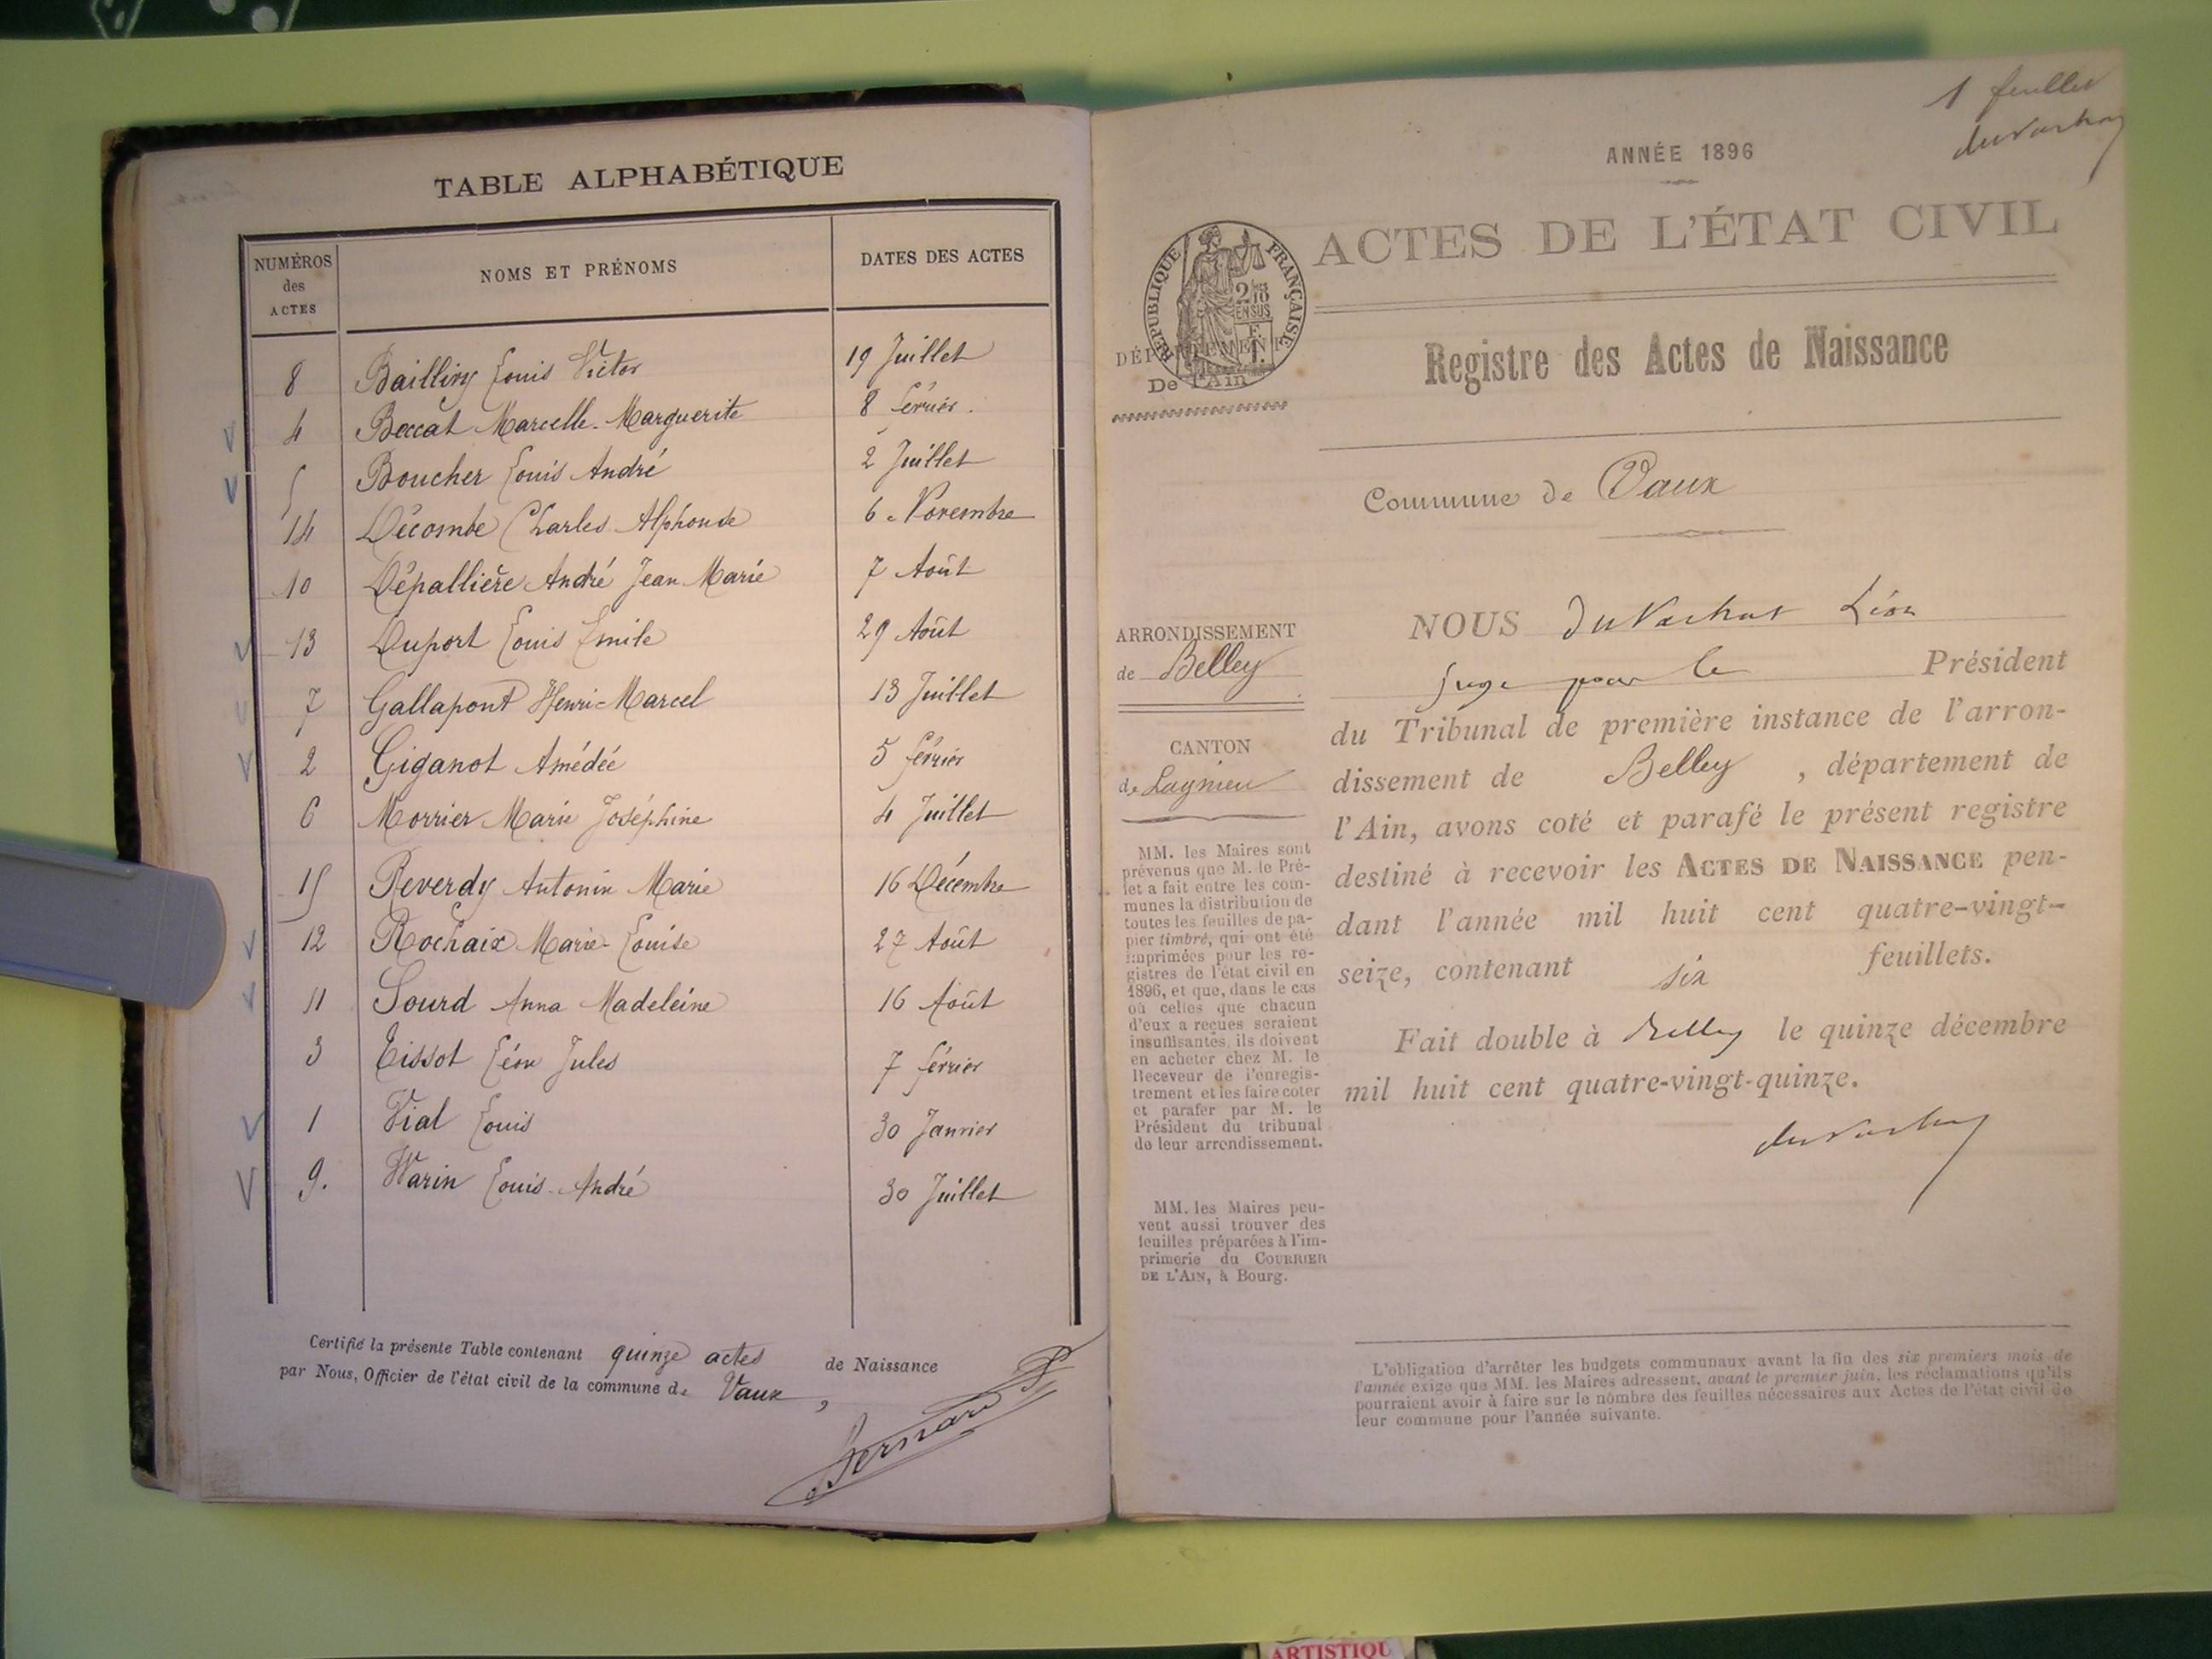 TABLE ALPHABÉTIQUE
NUMÉROS des ACTES NOMS ET PRÉNOMS DATES DES ACTES
8 Bailliny Louis Victor 19 Juillet
4 Beccat Marcelle-Marguerite 8 février.
5 Boucher Louis André 2 Juillet
14 Décombe Charles Alphonse 6 Novembre
10 Dépallière André Jean Marie 7 Août
13 Duport Louis Emile 29 Août
7 Gallapont Henri-Marcel 13 Juillet
2 Giganot Amédée 5 février
6 Morrier Marie Joséphine 4 Juillet
15 Reverdy Antonin Marie 16 Décembre
12 Rochaix Marie-Louise 27 Août
11 Sourd Anna Madeleine 16 Août
3 Tissot Léon Jules 7 février
1 Vial Louis 30 Janvier
9. Warin Louis-André 30 Juillet
Certifié la présente Table contenant quinze actes de Naissance
par Nous, Officier de l'état civil de la commune de Vaux,
Bernard
1 feuillet
ANNÉE 1896
ACTES DE L'ÉTAT CIVIL
RÉPUBLIQUE FRANÇAISE
2/10 EN SUS
DÉPARTEMENT
De l'Ain
Registre des Actes de Naissance
Commune de Vaux
ARRONDISSEMENT
de Belley
CANTON
de Lagnieu
MM. les Maires sont
prévenus que M. le Pré-
fet a fait entre les com-
munes la distribution de
toutes les feuilles de pa-
pier timbré, qui ont été
imprimées pour les re-
gistres de l'état civil en
1896, et que, dans le cas
où celles que chacun
d'eux a reçues seraient
insuffisantes, ils doivent
en acheter chez M. le
Receveur de l'enregis-
trement et les faire coter
et parafer par M. le
Président du tribunal
de leur arrondissement.
MM. les Maires peu-
vent aussi trouver des
feuilles préparées à l'im-
primerie du COURRIER
DE L'AIN, à Bourg.
NOUS duVachat Léon
juge pour le Président
du Tribunal de première instance de l'arron-
dissement de Belley, département de
l'Ain, avons coté et parafé le présent registre
destiné à recevoir les ACTES DE NAISSANCE pen-
dant l'année mil huit cent quatre-vingt-
seize, contenant six feuillets.
Fait double à Belley le quinze décembre
mil huit cent quatre-vingt-quinze.
duVachat
L'obligation d'arrêter les budgets communaux avant la fin des six premiers mois de
l'année exige que MM. les Maires adressent, avant le premier juin, les réclamations qu'ils
pourraient avoir à faire sur le nombre des feuilles nécessaires aux Actes de l'état civil de
leur commune pour l'année suivante.
ARTISTIQU